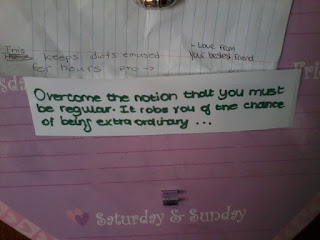 This keeps idiots amused
for hours pto →
- Love from
Your bestest friend
Fri
sday
Overcome the notion that you must
be regular. It robs you of the chance
of being extraordinary ...
Saturday & Sunday